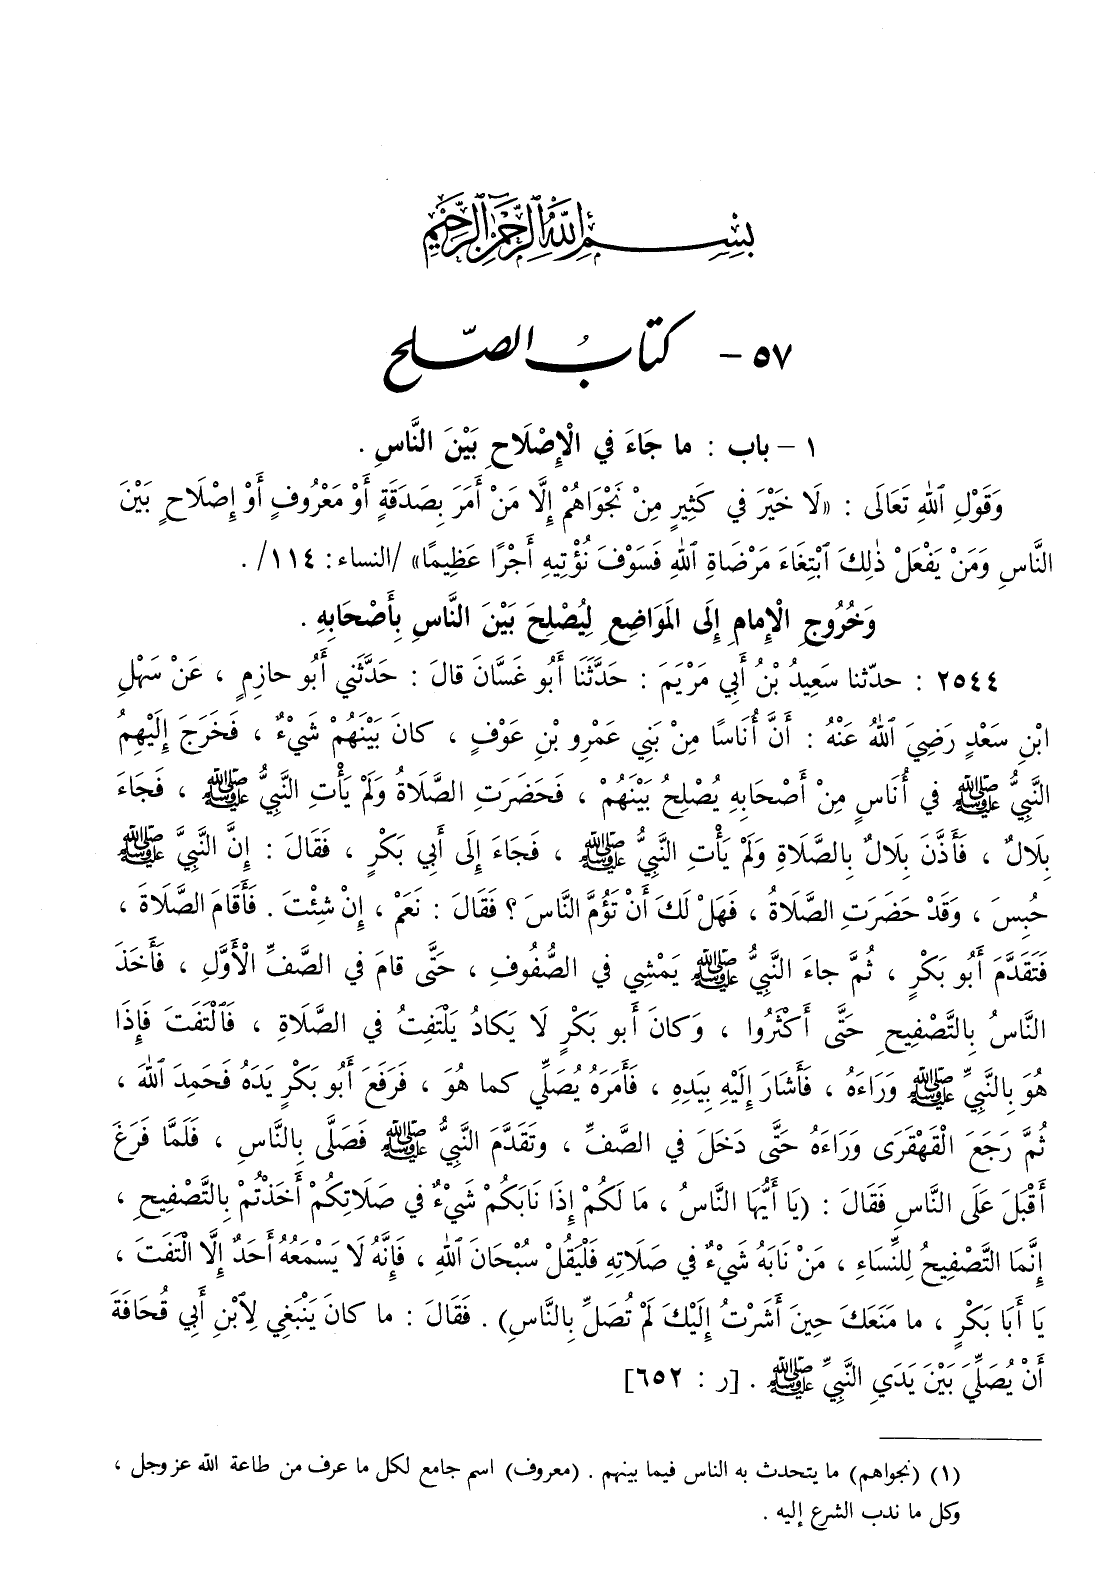 بِسْمِ اللَّهِ الرَّحْمَٰنِ الرَّحِيمِ
٥٧ - كتابُ الصّلح
١ - باب : ما جَاءَ في الْإِصْلَاحِ بَيْنَ النَّاسِ .
وَقَوْلِ ٱللهِ تَعَالَى : «لَا خَيْرَ في كَثِيرٍ مِنْ نَجْوَاهُمْ إِلَّا مَنْ أَمَرَ بِصَدَقَةٍ أَوْ مَعْرُوفٍ أَوْ إِصْلَاحٍ بَيْنَ
النَّاسِ وَمَنْ يَفْعَلْ ذٰلِكَ ٱبْتِغَاءَ مَرْضَاةِ ٱللهِ فَسَوْفَ نُؤْتِيهِ أَجْرًا عَظِيمًا» /النساء: ١١٤/ .
وَخُرُوجِ الْإِمامِ إِلَى المَوَاضِعِ لِيُصْلِحَ بَيْنَ النَّاسِ بِأَصْحَابِهِ .
٢٥٤٤ : حدّثنا سَعِيدُ بْنُ أَبِي مَرْيَمَ : حَدَّثَنَا أَبُو غَسَّانَ قالَ : حَدَّثَنِي أَبُو حازِمٍ ، عَنْ سَهْلِ
ابْنِ سَعْدٍ رَضِيَ ٱللهُ عَنْهُ : أَنَّ أُنَاسًا مِنْ بَنِي عَمْرِو بْنِ عَوْفٍ ، كانَ بَيْنَهُمْ شَيْءٌ ، فَخَرَجَ إِلَيْهِمُ
النَّبِيُّ ﷺ في أُنَاسٍ مِنْ أَصْحَابِهِ يُصْلِحُ بَيْنَهُمْ ، فَحَضَرَتِ الصَّلَاةُ وَلَمْ يَأْتِ النَّبِيُّ ﷺ ، فَجَاءَ
بِلَالٌ ، فَأَذَّنَ بِلَالٌ بِالصَّلَاةِ وَلَمْ يَأْتِ النَّبِيُّ ﷺ ، فَجَاءَ إِلَى أَبِي بَكْرٍ ، فَقَالَ : إِنَّ النَّبِيَّ ﷺ
حُبِسَ ، وَقَدْ حَضَرَتِ الصَّلَاةُ ، فَهَلْ لَكَ أَنْ تَؤُمَّ النَّاسَ ؟ فَقَالَ : نَعَمْ ، إِنْ شِئْتَ . فَأَقَامَ الصَّلَاةَ ،
فَتَقَدَّمَ أَبُو بَكْرٍ ، ثُمَّ جاءَ النَّبِيُّ ﷺ يَمْشِي في الصُّفُوفِ ، حَتَّى قامَ في الصَّفِّ الْأَوَّلِ ، فَأَخَذَ
النَّاسُ بِالتَّصْفِيحِ حَتَّى أَكْثَرُوا ، وَكانَ أَبو بَكْرٍ لَا يَكادُ يَلْتَفِتُ في الصَّلَاةِ ، فَٱلْتَفَتَ فَإِذَا
هُوَ بِالنَّبِيِّ ﷺ وَرَاءَهُ ، فَأَشَارَ إِلَيْهِ بِيَدِهِ ، فَأَمَرَهُ يُصَلِّي كما هُوَ ، فَرَفَعَ أَبُو بَكْرٍ يَدَهُ فَحَمِدَ ٱللهَ ،
ثُمَّ رَجَعَ الْقَهْقَرَى وَرَاءَهُ حَتَّى دَخَلَ في الصَّفِّ ، وَتَقَدَّمَ النَّبِيُّ ﷺ فَصَلَّى بِالنَّاسِ ، فَلَمَّا فَرَغَ
أَقْبَلَ عَلَى النَّاسِ فَقَالَ : (يَا أَيُّهَا النَّاسُ ، مَا لَكُمْ إِذَا نَابَكُمْ شَيْءٌ في صَلَاتِكُمْ أَخَذْتُمْ بِالتَّصْفِيحِ ،
إِنَّمَا التَّصْفِيحُ لِلنِّسَاءِ ، مَنْ نَابَهُ شَيْءٌ في صَلَاتِهِ فَلْيَقُلْ سُبْحَانَ ٱللهِ ، فَإِنَّهُ لَا يَسْمَعُهُ أَحَدٌ إِلَّا الْتَفَتَ ،
يَا أَبَا بَكْرٍ ، ما مَنَعَكَ حِينَ أَشَرْتُ إِلَيْكَ لَمْ تُصَلِّ بِالنَّاسِ) . فَقَالَ : ما كانَ يَنْبَغِي لِٱبْنِ أَبِي قُحَافَةَ
أَنْ يُصَلِّيَ بَيْنَ يَدَيِ النَّبِيِّ ﷺ . [ر : ٦٥٢]
(١) (نجواهم) ما يتحدث به الناس فيما بينهم . (معروف) اسم جامع لكل ما عرف من طاعة الله عز وجل ،
وكل ما ندب الشرع إليه .